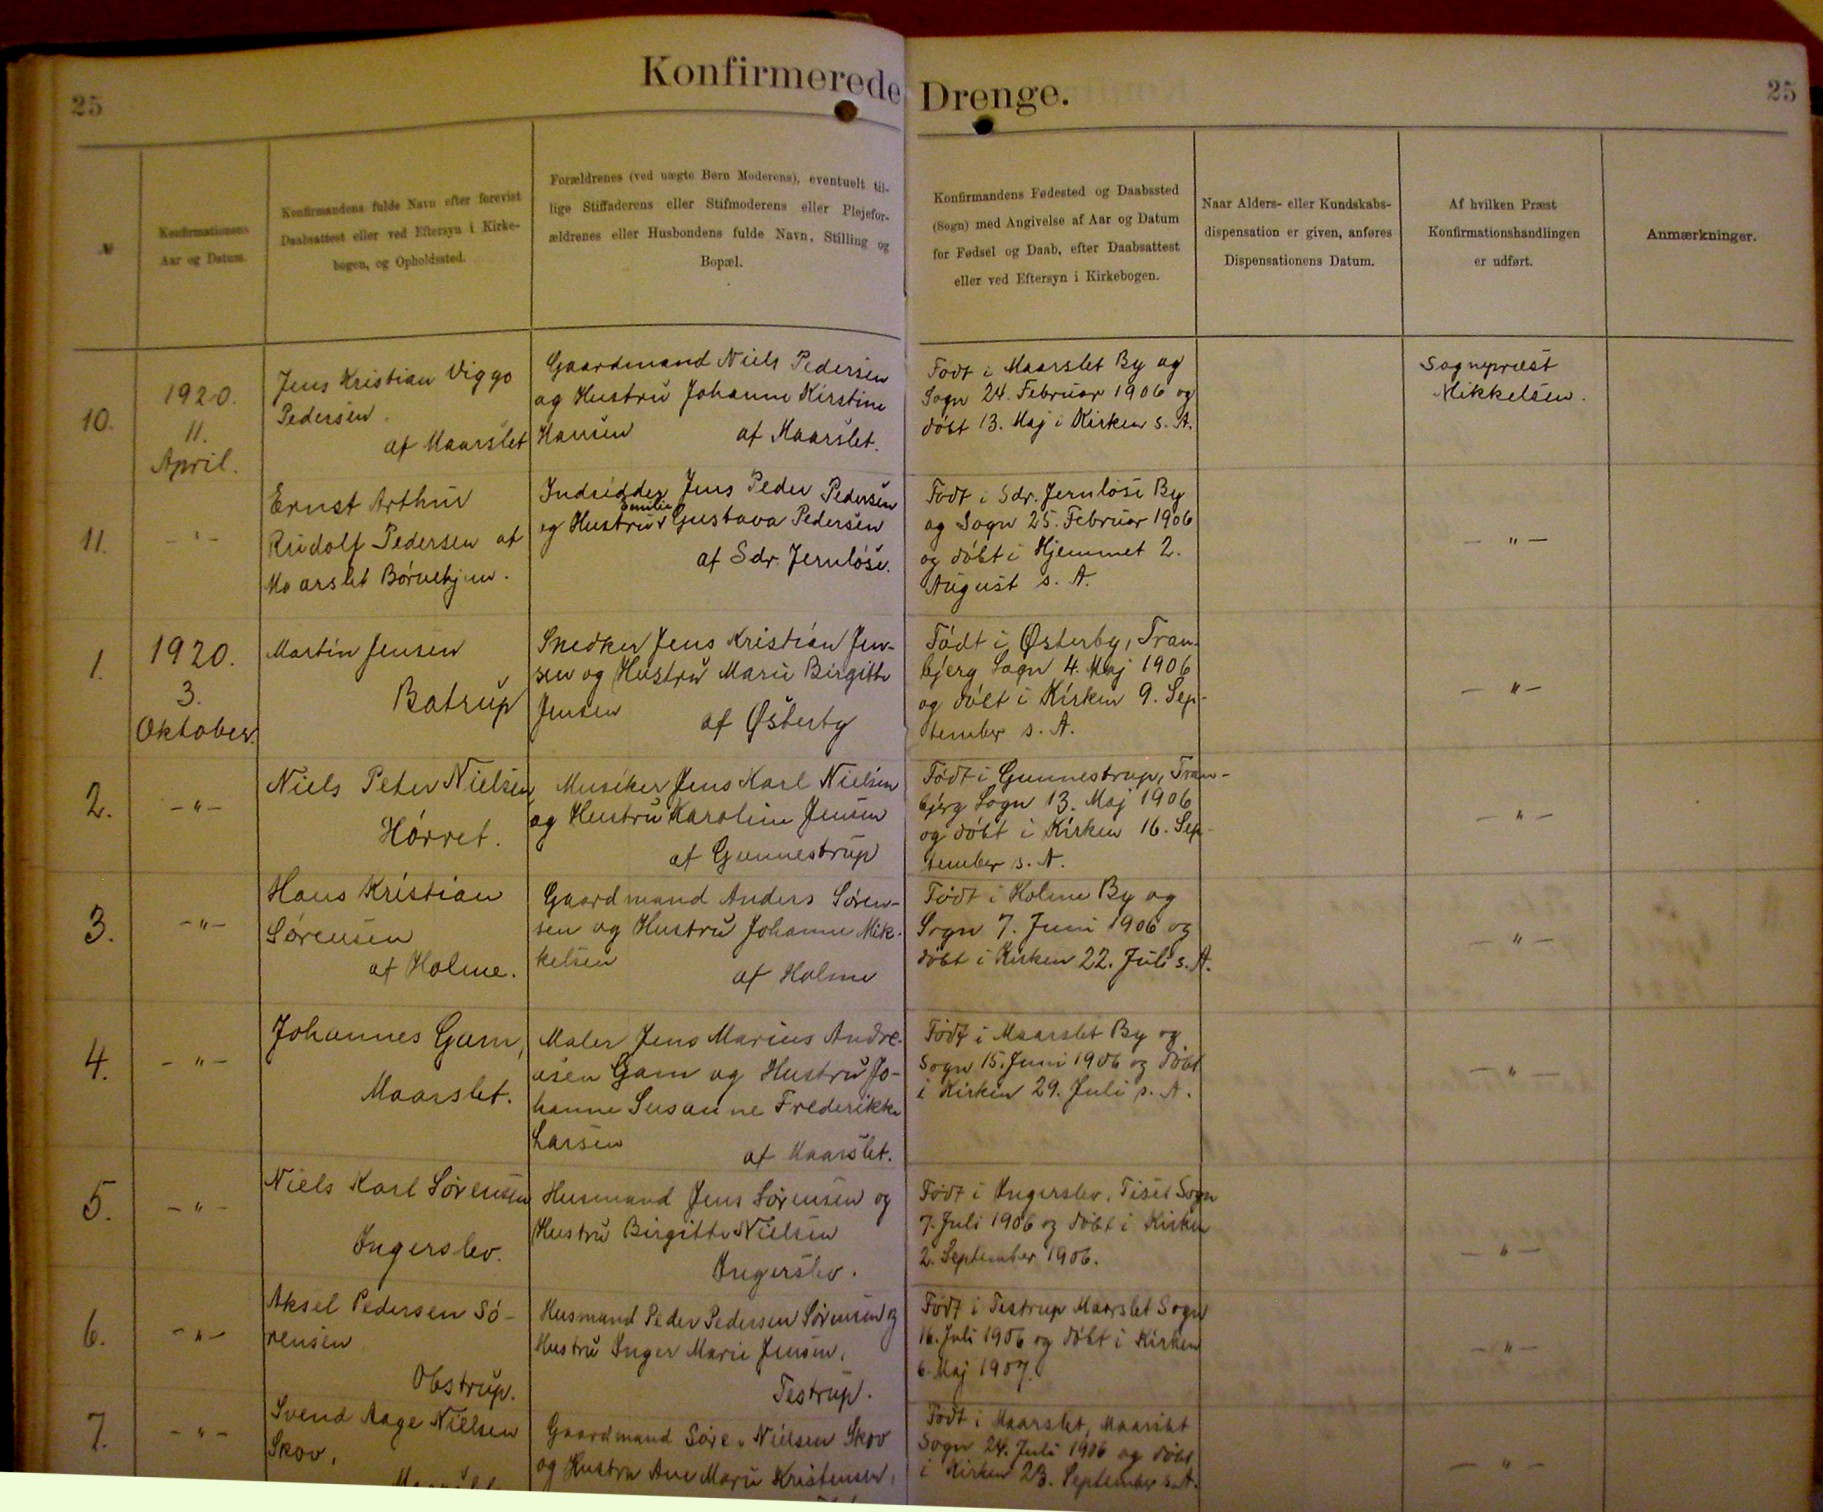 25
Konfirmerede Drenge.
25
№
Konfirmationens
Aar og Datum.
Konfirmandens fulde Navn efter forevist
Daabsattest eller ved Eftersyn i Kirke-
bogen, og Opholdssted.
Forældrenes (ved uægte Børn Moderens), eventuelt til-
lige Stiffaderens eller Stifmoderens eller Plejefor-
ældrenes eller Husbondens fulde Navn, Stilling og
Bopæl.
Konfirmandens Fødested og Daabssted
(Sogn) med Angivelse af Aar og Datum
for Fødsel og Daab, efter Daabsattest
eller ved Eftersyn i Kirkebogen.
Naar Alders- eller Kundskabs-
dispensation er given, anføres
Dispensationens Datum.
Af hvilken Præst
Konfirmationshandlingen
er udført.
Anmærkninger.
10.
1920.
11.
April.
Jens Kristian Viggo
Pedersen.
af Maarslet
Gaardmand Niels Pedersen
og Hustru Johanne Kirstine
Hansen af Maarslet.
Født i Maarslet By og
Sogn 24. Februar 1906 og
døbt 13. Maj i Kirken s. A.
Sognepræst
Mikkelsen.
11.
- " -
Ernst Arthur
Rudolf Pedersen af
Maarslet Børnehjem.
Indsidder Jens Peder Pedersen
Emilie
og Hustru Gustava Pedersen
af Sdr. Jernløse.
Født i Sdr. Jernløse By
og Sogn 25. Februar 1906
og døbt i Hjemmet 2.
August s. A.
- " -
1.
1920.
3.
Oktober.
Martin Jensen
Batrup
Snedker Jens Kristian Jen-
sen og Hustru Marie Birgitte
Jensen af Østerby
Født i Østerby, Tran-
bjerg Sogn 4. Maj 1906
og døbt i Kirken 9. Sep-
tember s. A.
- " -
2.
- " -
Niels Peter Nielsen,
Hørret.
Musiker Jens Karl Nielsen
og Hustru Karoline Jensen
af Gunnestrup
Født i Gunnestrup, Tran-
bjerg Sogn 13. Maj 1906
og døbt i Kirken 16. Sep-
tember s. A.
- " -
3.
- " -
Hans Kristian
Sørensen
af Holme.
Gaardmand Anders Søren-
sen og Hustru Johanne Mik-
kelsen
af Holme
Født i Holme By og
Sogn 7. Juni 1906 og
døbt i Kirken 22. Juli s. A.
- " -
4.
- " -
Johannes Gam,
Maarslet.
Maler Jens Marius Andre-
asen Gam og Hustru Jo-
hanne Susanne Frederikke
Larsen
af Maarslet.
Født i Maarslet By og
Sogn 15. Juni 1906 og døbt
i Kirken 29. Juli s. A.
- " -
5.
- " -
Niels Karl Sørensen
Ingerslev.
Husmand Jens Sørensen og
Hustru Birgitte Nielsen
Ingerslev.
Født i Ingerslev, Tiset Sogn
7. Juli 1906 og døbt i Kirken
2. September 1906.
- " -
6.
- " -
Aksel Pedersen Sø-
rensen
Obstrup.
Husmand Peder Pedersen Sørensen og
Hustru Inger Marie Jensen,
Testrup.
Født i Testrup Maarslet Sogn
16. Juli 1906 og døbt i Kirken
6. Maj 1907.
- " -
7.
- " -
Svend Aage Nielsen
Skov,
Gaardmand Søren Nielsen Skov
og Hustru Ane Marie Kristensen,
Født i Maarslet, Maarslet
Sogn 24. Juli 1906 og døbt
i Kirken 23. September s. A.
- " -